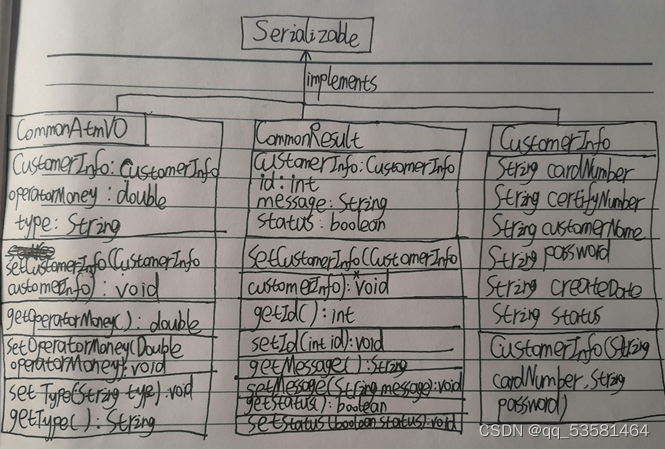 Serializable
implements
CommonAtmVO
CustomerInfo: CustomerInfo
operatorMoney: double
type: String
setCustomerInfo(CustomerInfo
customerInfo): void
getOperatorMoney(): double
setOperatorMoney(Double
operatorMoney): void
setType(String type): void
getType(): String
CommonResult
CustomerInfo: CustomerInfo
id: int
message: String
status: boolean
setCustomerInfo(CustomerInfo
customerInfo): void
getId(): int
setId(int id): void
getMessage(): String
setMessage(String message): void
getStatus(): boolean
setStatus(boolean status): void
CustomerInfo
String cardNumber
String certifyNumber
String customerName
String password
String createDate
String status
CustomerInfo(String
cardNumber, String
password)
CSDN @qq_53581464